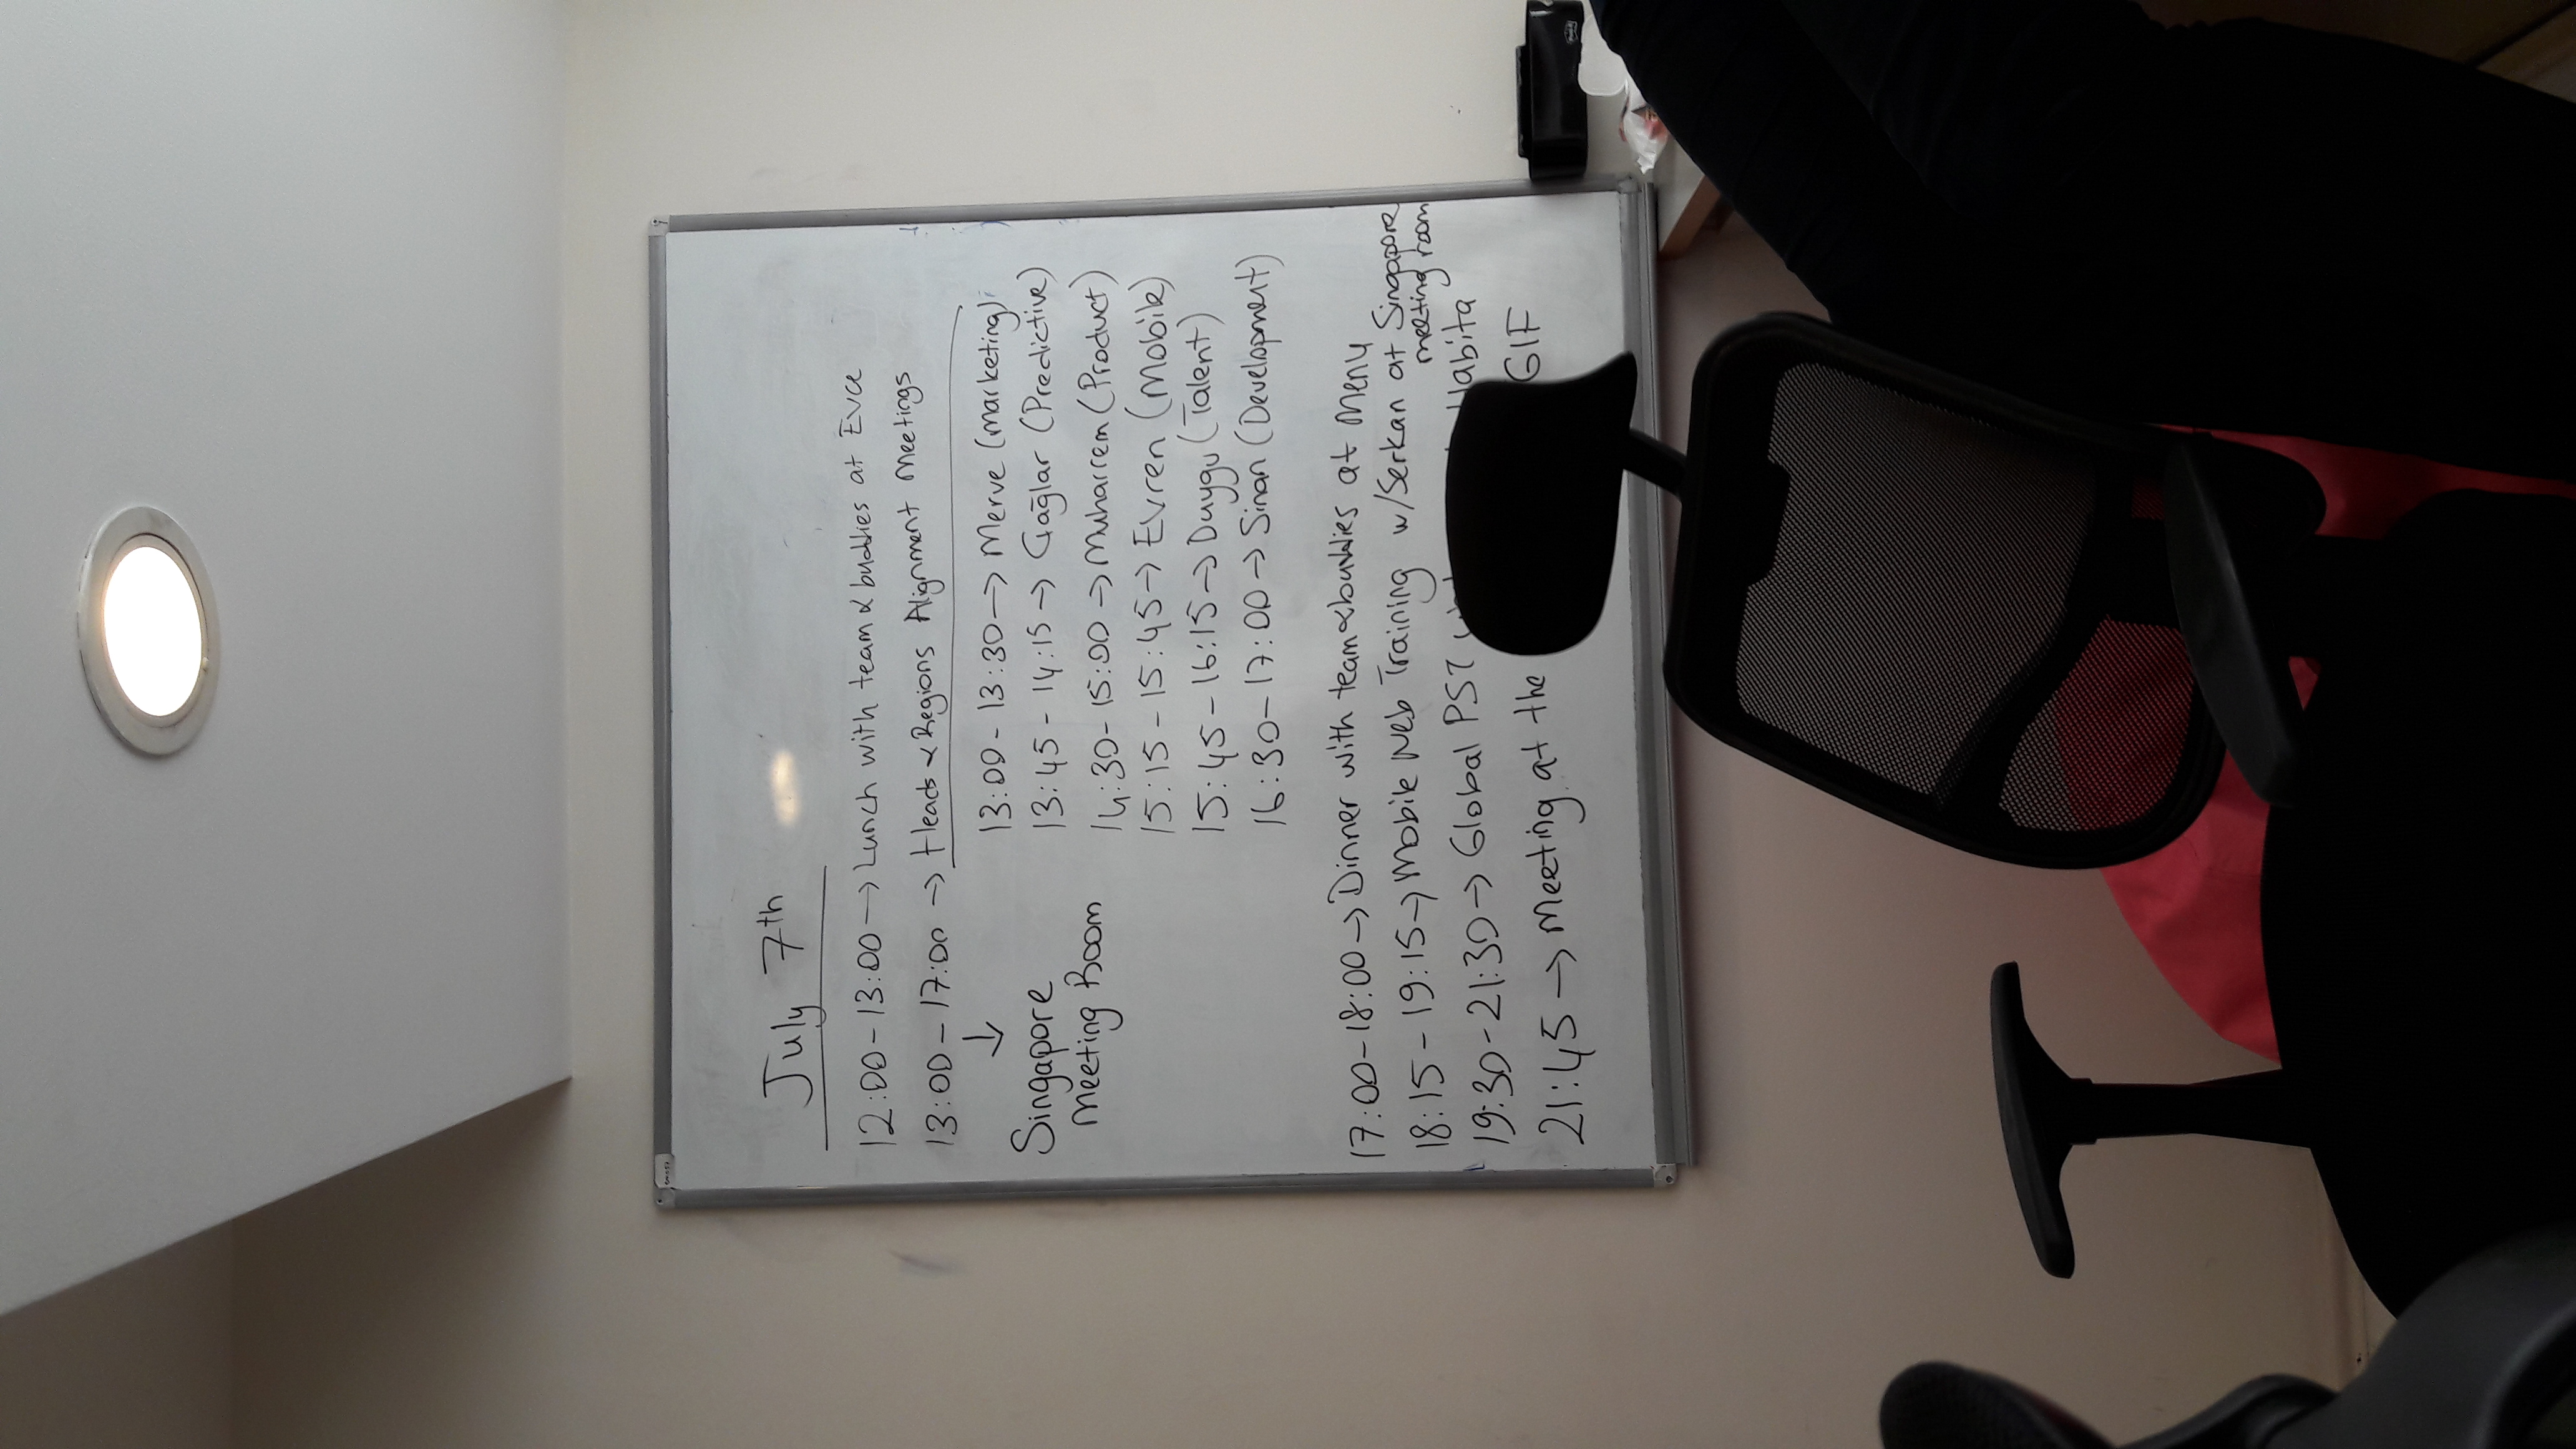 July 7th
12:00 - 13:00 → Lunch with team & buddies at Evce
13:00 - 17:00 → Heads & Regions Alignment Meetings
↓
Singapore
Meeting Room
13:00 - 13:30 → Merve (Marketing)
13:45 - 14:15 → Çağlar (Predictive)
14:30 - 15:00 → Muharrem (Product)
15:15 - 15:45 → Evren (Mobile)
15:45 - 16:15 → Duygu (Talent)
16:30 - 17:00 → Sinan (Development)
17:00 - 18:00 → Dinner with team & buddies at Meny
18:15 - 19:15 → Mobile Web Training w/Serkan at Singapore
meeting room
19:30 - 21:30 → Global PST Habita
21:45 → Meeting at the GIF